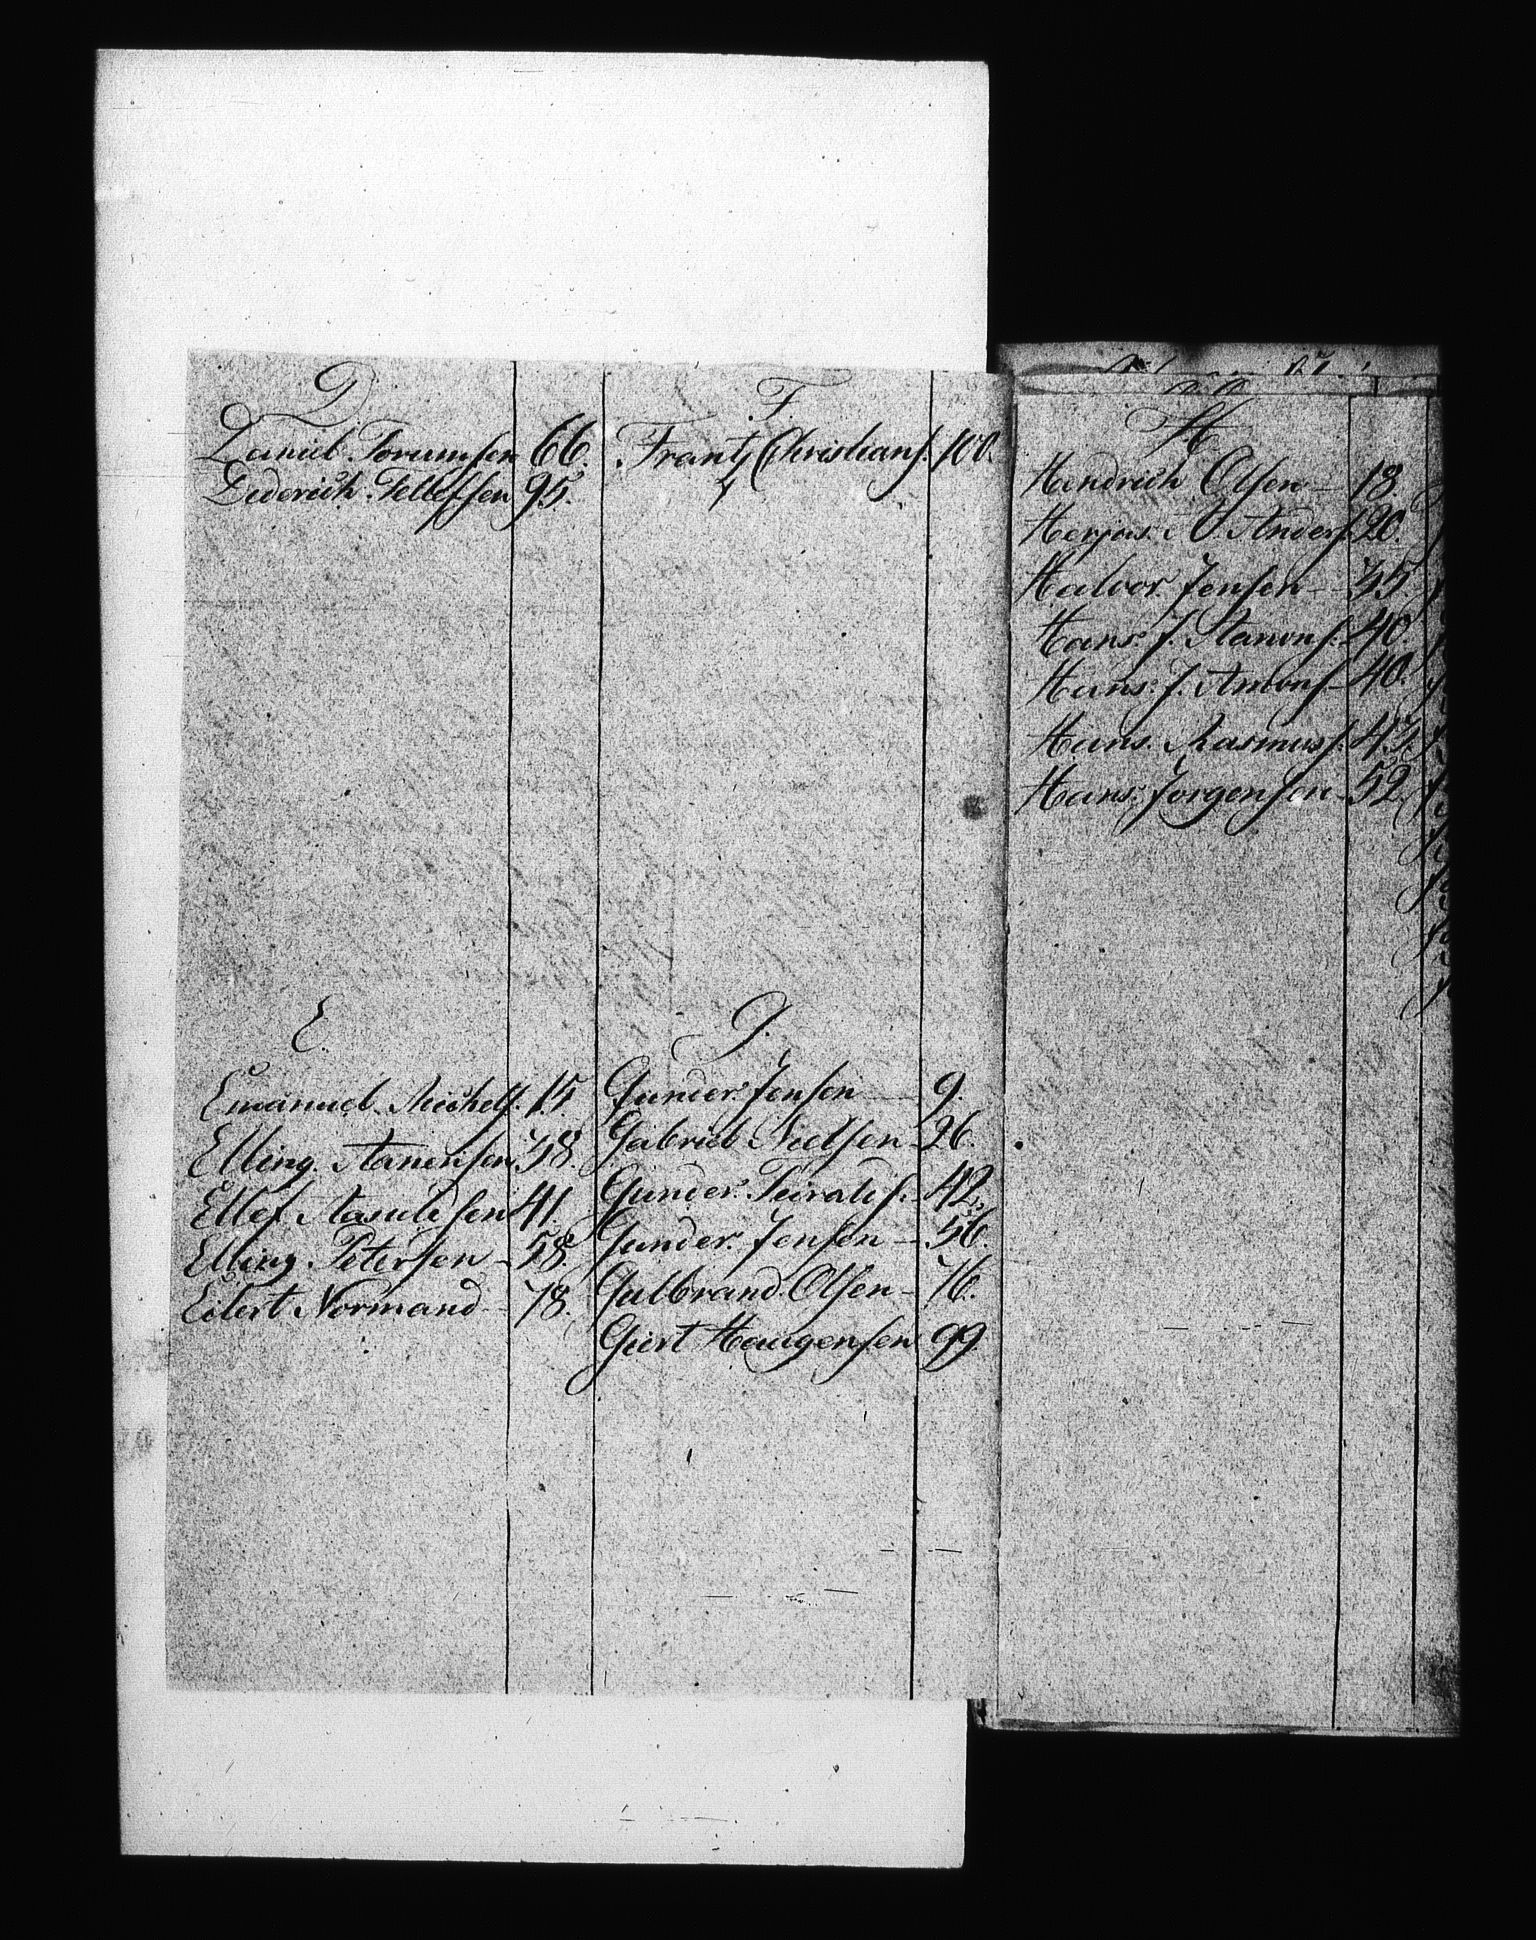 D.
Daniel Torumsen 66.
Dederich Tellefsen 95.
E.
Emanuel Michels. 15.
Elling Aanensen 38.
Ellef Aasulesen 41.
Elling Petersen 58.
Eilert Normand 78.
F.
Frantz Christians. 100.
G.
Gunder Jensen 9.
Gabriel Nielsen 26.
Gunder Teiralds. 42.
Gunder Jensen 56.
Gulbrand Olsen 76.
Giert Haugensen 99.
H
Hendrich Olsen 18.
A Anders. 20.
Halvor Jensen 35.
Hans J. 40.
Hans J. 40.
Hans Rasmus. 43.
Hans Jørgensen 52.